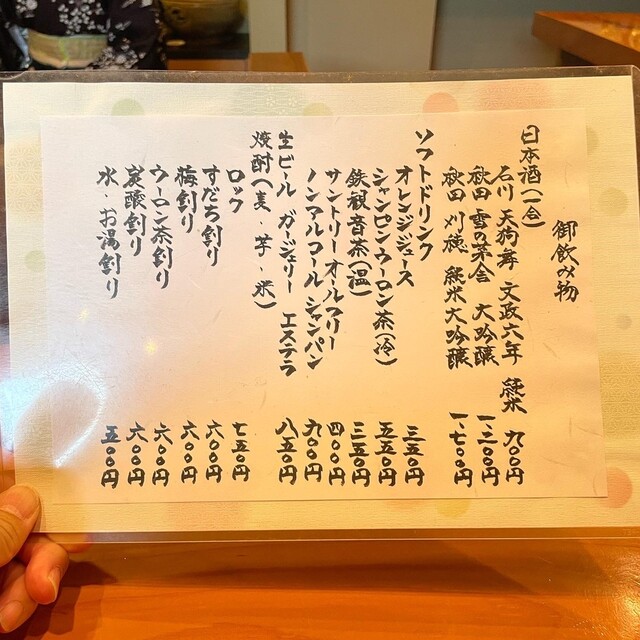 御飲み物
日本酒(一合)
石川 天狗舞 文政六年 純米 九〇〇円
秋田 雪の茅舎 大吟醸 一、二〇〇円
秋田 刈穂 純米大吟醸 一、七〇〇円
ソフトドリンク
オレンジジュース 三五〇円
ジャンピンウーロン茶(冷) 五五〇円
鉄観音茶(温) 三五〇円
サントリーオールフリー 四〇〇円
ノンアルコールシャンパン 九〇〇円
生ビール ガージェリー エステラ 八五〇円
焼酎(麦・芋・米)
ロック 七五〇円
すだち割り 六〇〇円
梅割り 六〇〇円
ウーロン茶割り 六〇〇円
炭酸割り 六〇〇円
水・お湯割り 五〇〇円